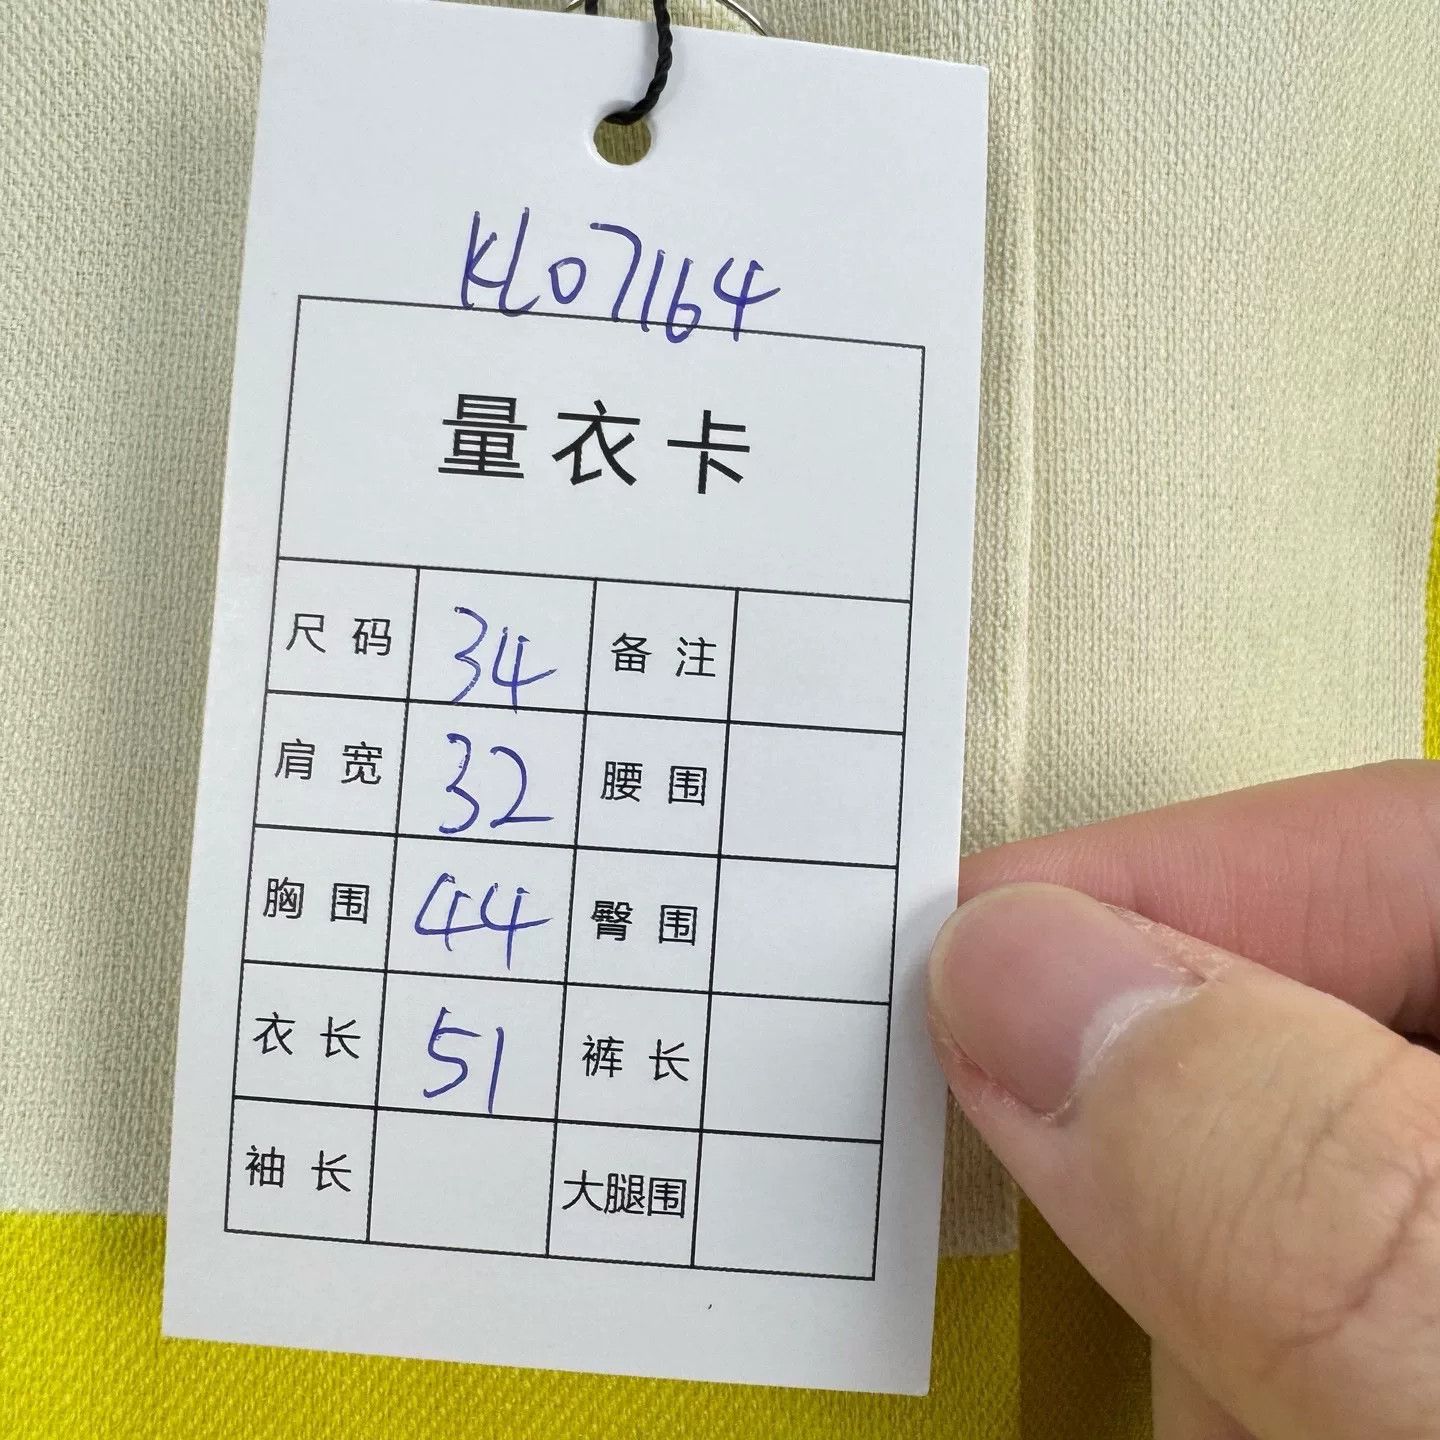 KL07164
量衣卡
尺码 34 备注
肩宽 32 腰围
胸围 44 臀围
衣长 51 裤长
袖长 大腿围